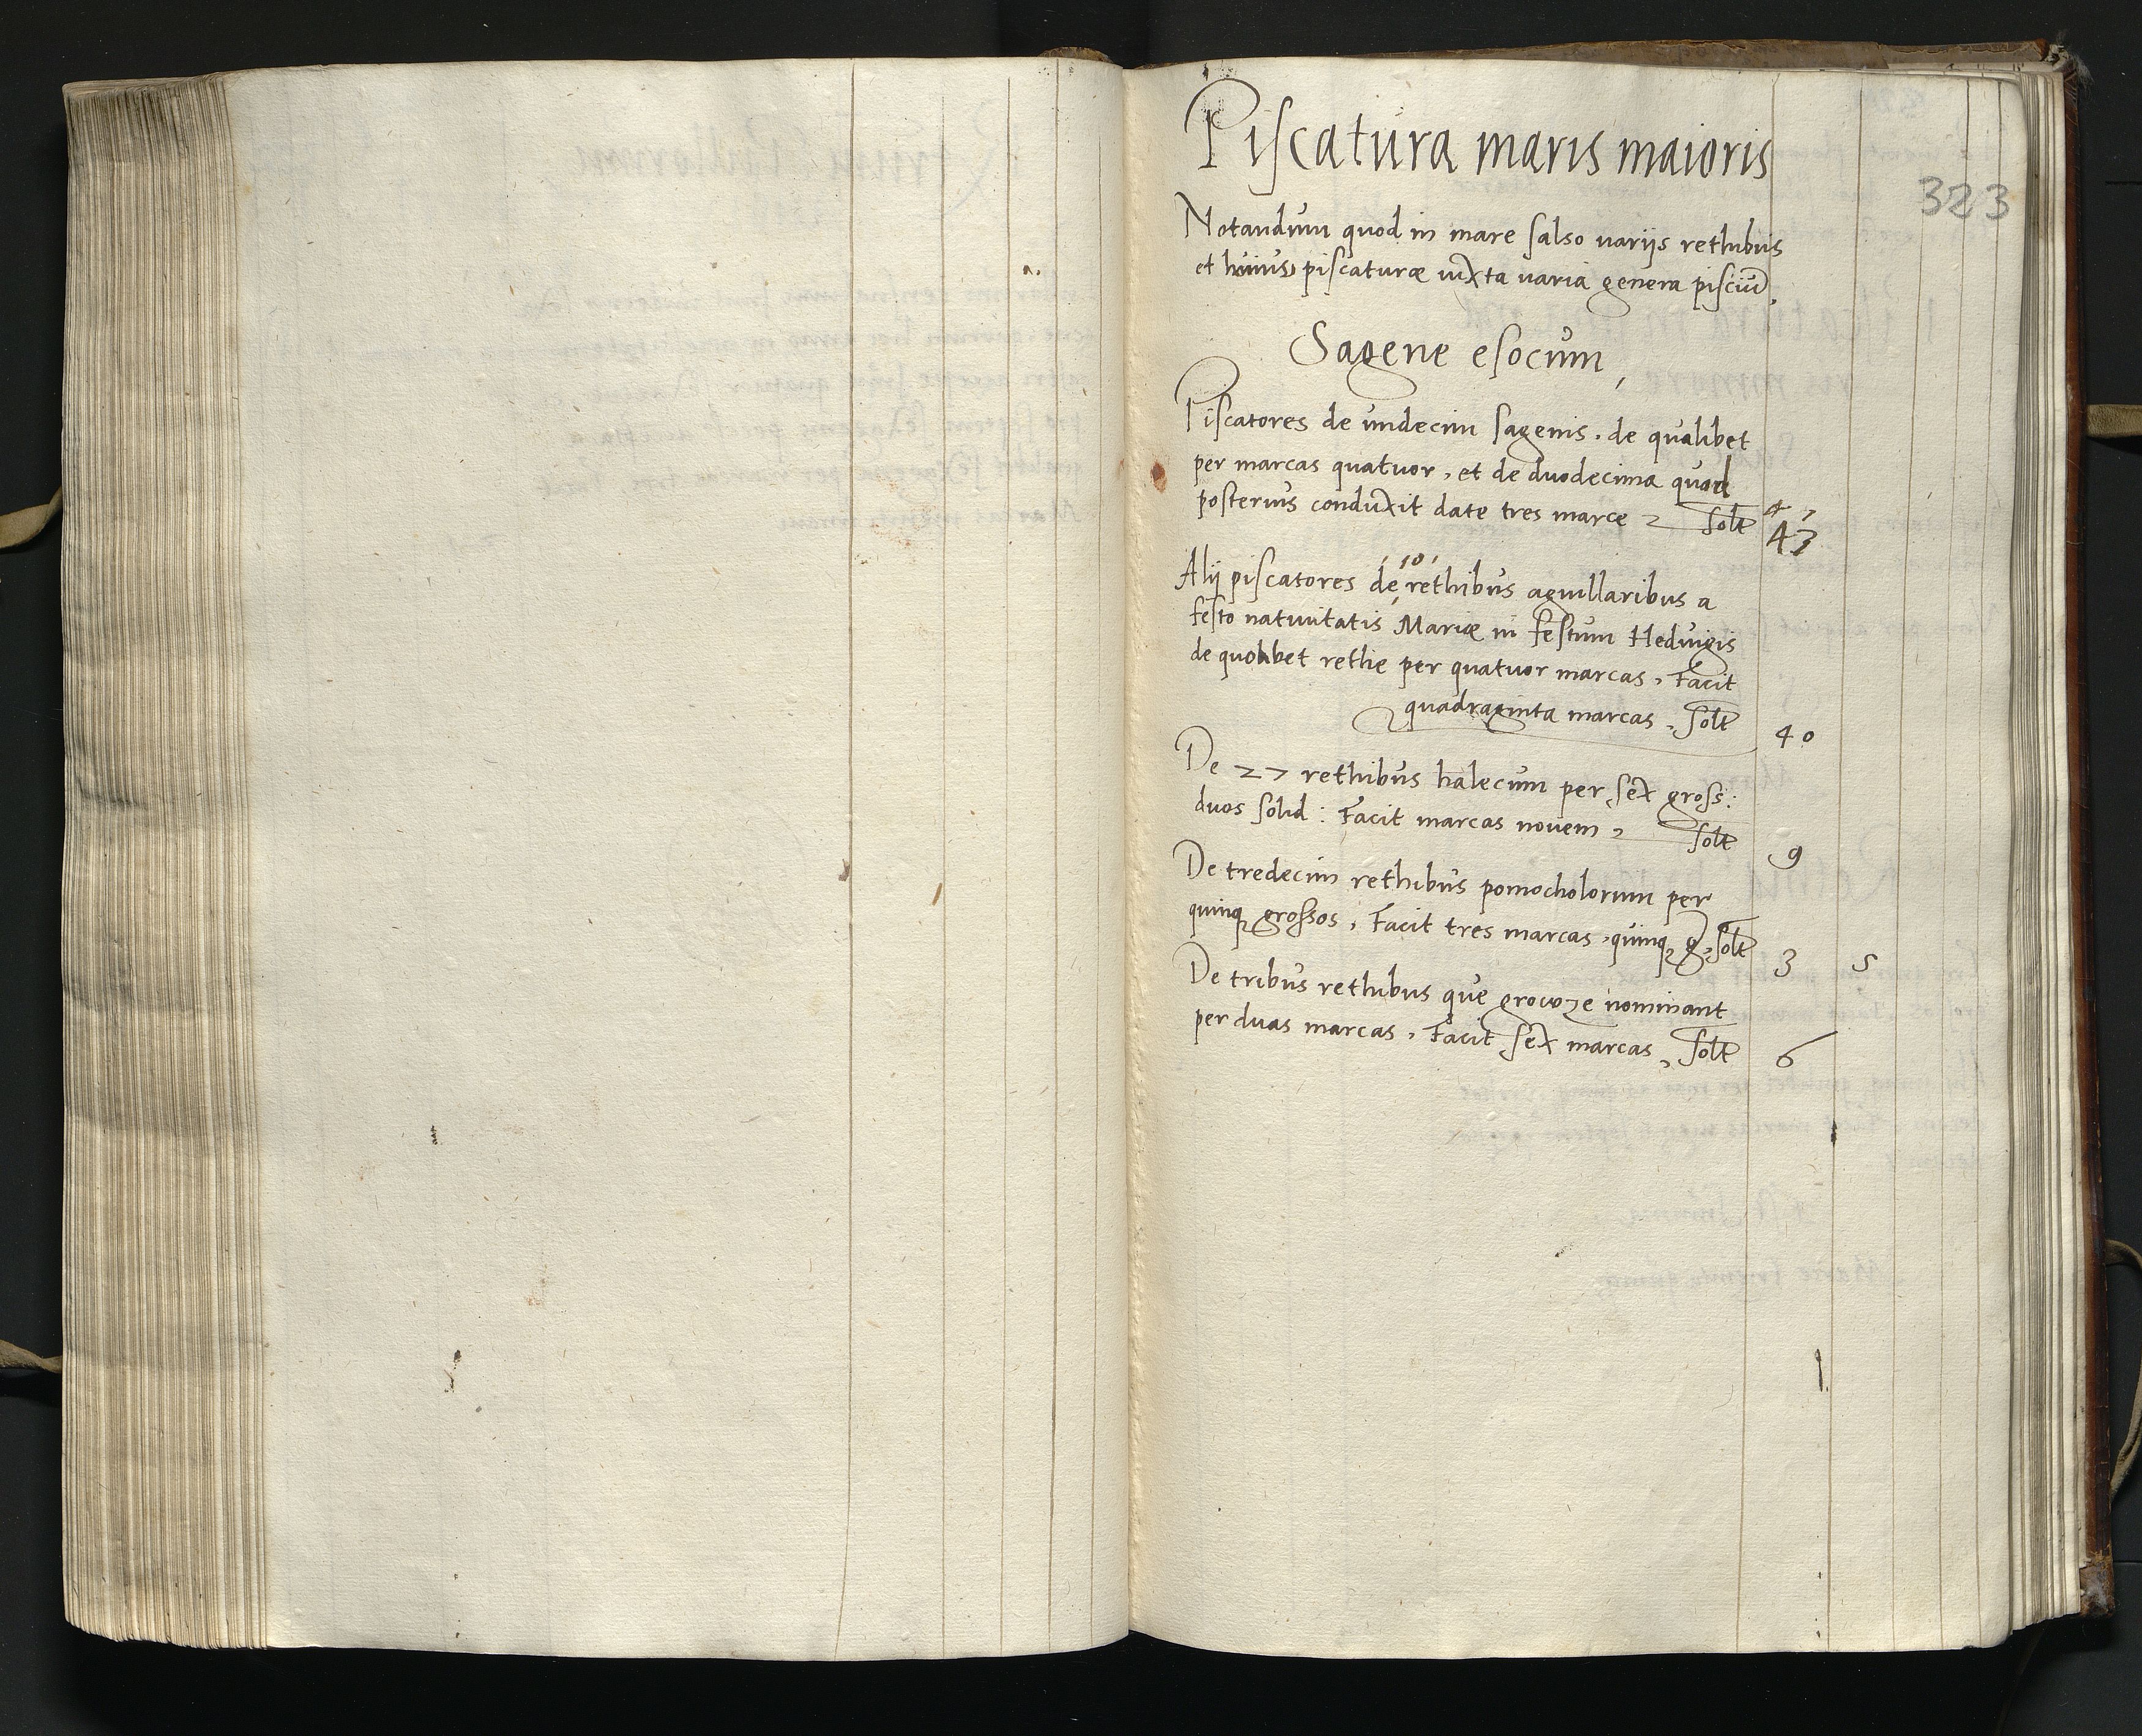 Piscatura maris maioris
323
Notandum quod in mare salso varijs rethibus
et huius piscaturæ iuxta varia genera pisciū,
Sagene esocum,
Piscatores de undecim sagenis. de qualibet
per marcas quatuor, et de duodecima quod
posterius conduxit date tres marce solt 47
43
Alij piscatores de 10 rethibus aguillaribus a
festo natiuitatis Mariæ in festum Heduigis
de quolibet rethe per quatuor marcas, Facit
quadraginta marcas, solt 40
De 27 rethibus halecum per sex gross:
duos solid: Facit marcas nouem, solt 9
De tredecim rethibus pomocholorum per
quinq grossos, Facit tres marcas, quinq g, solt 3 5
De tribus rethibus que growze nominant
per duas marcas, Facit sex marcas, solt 6